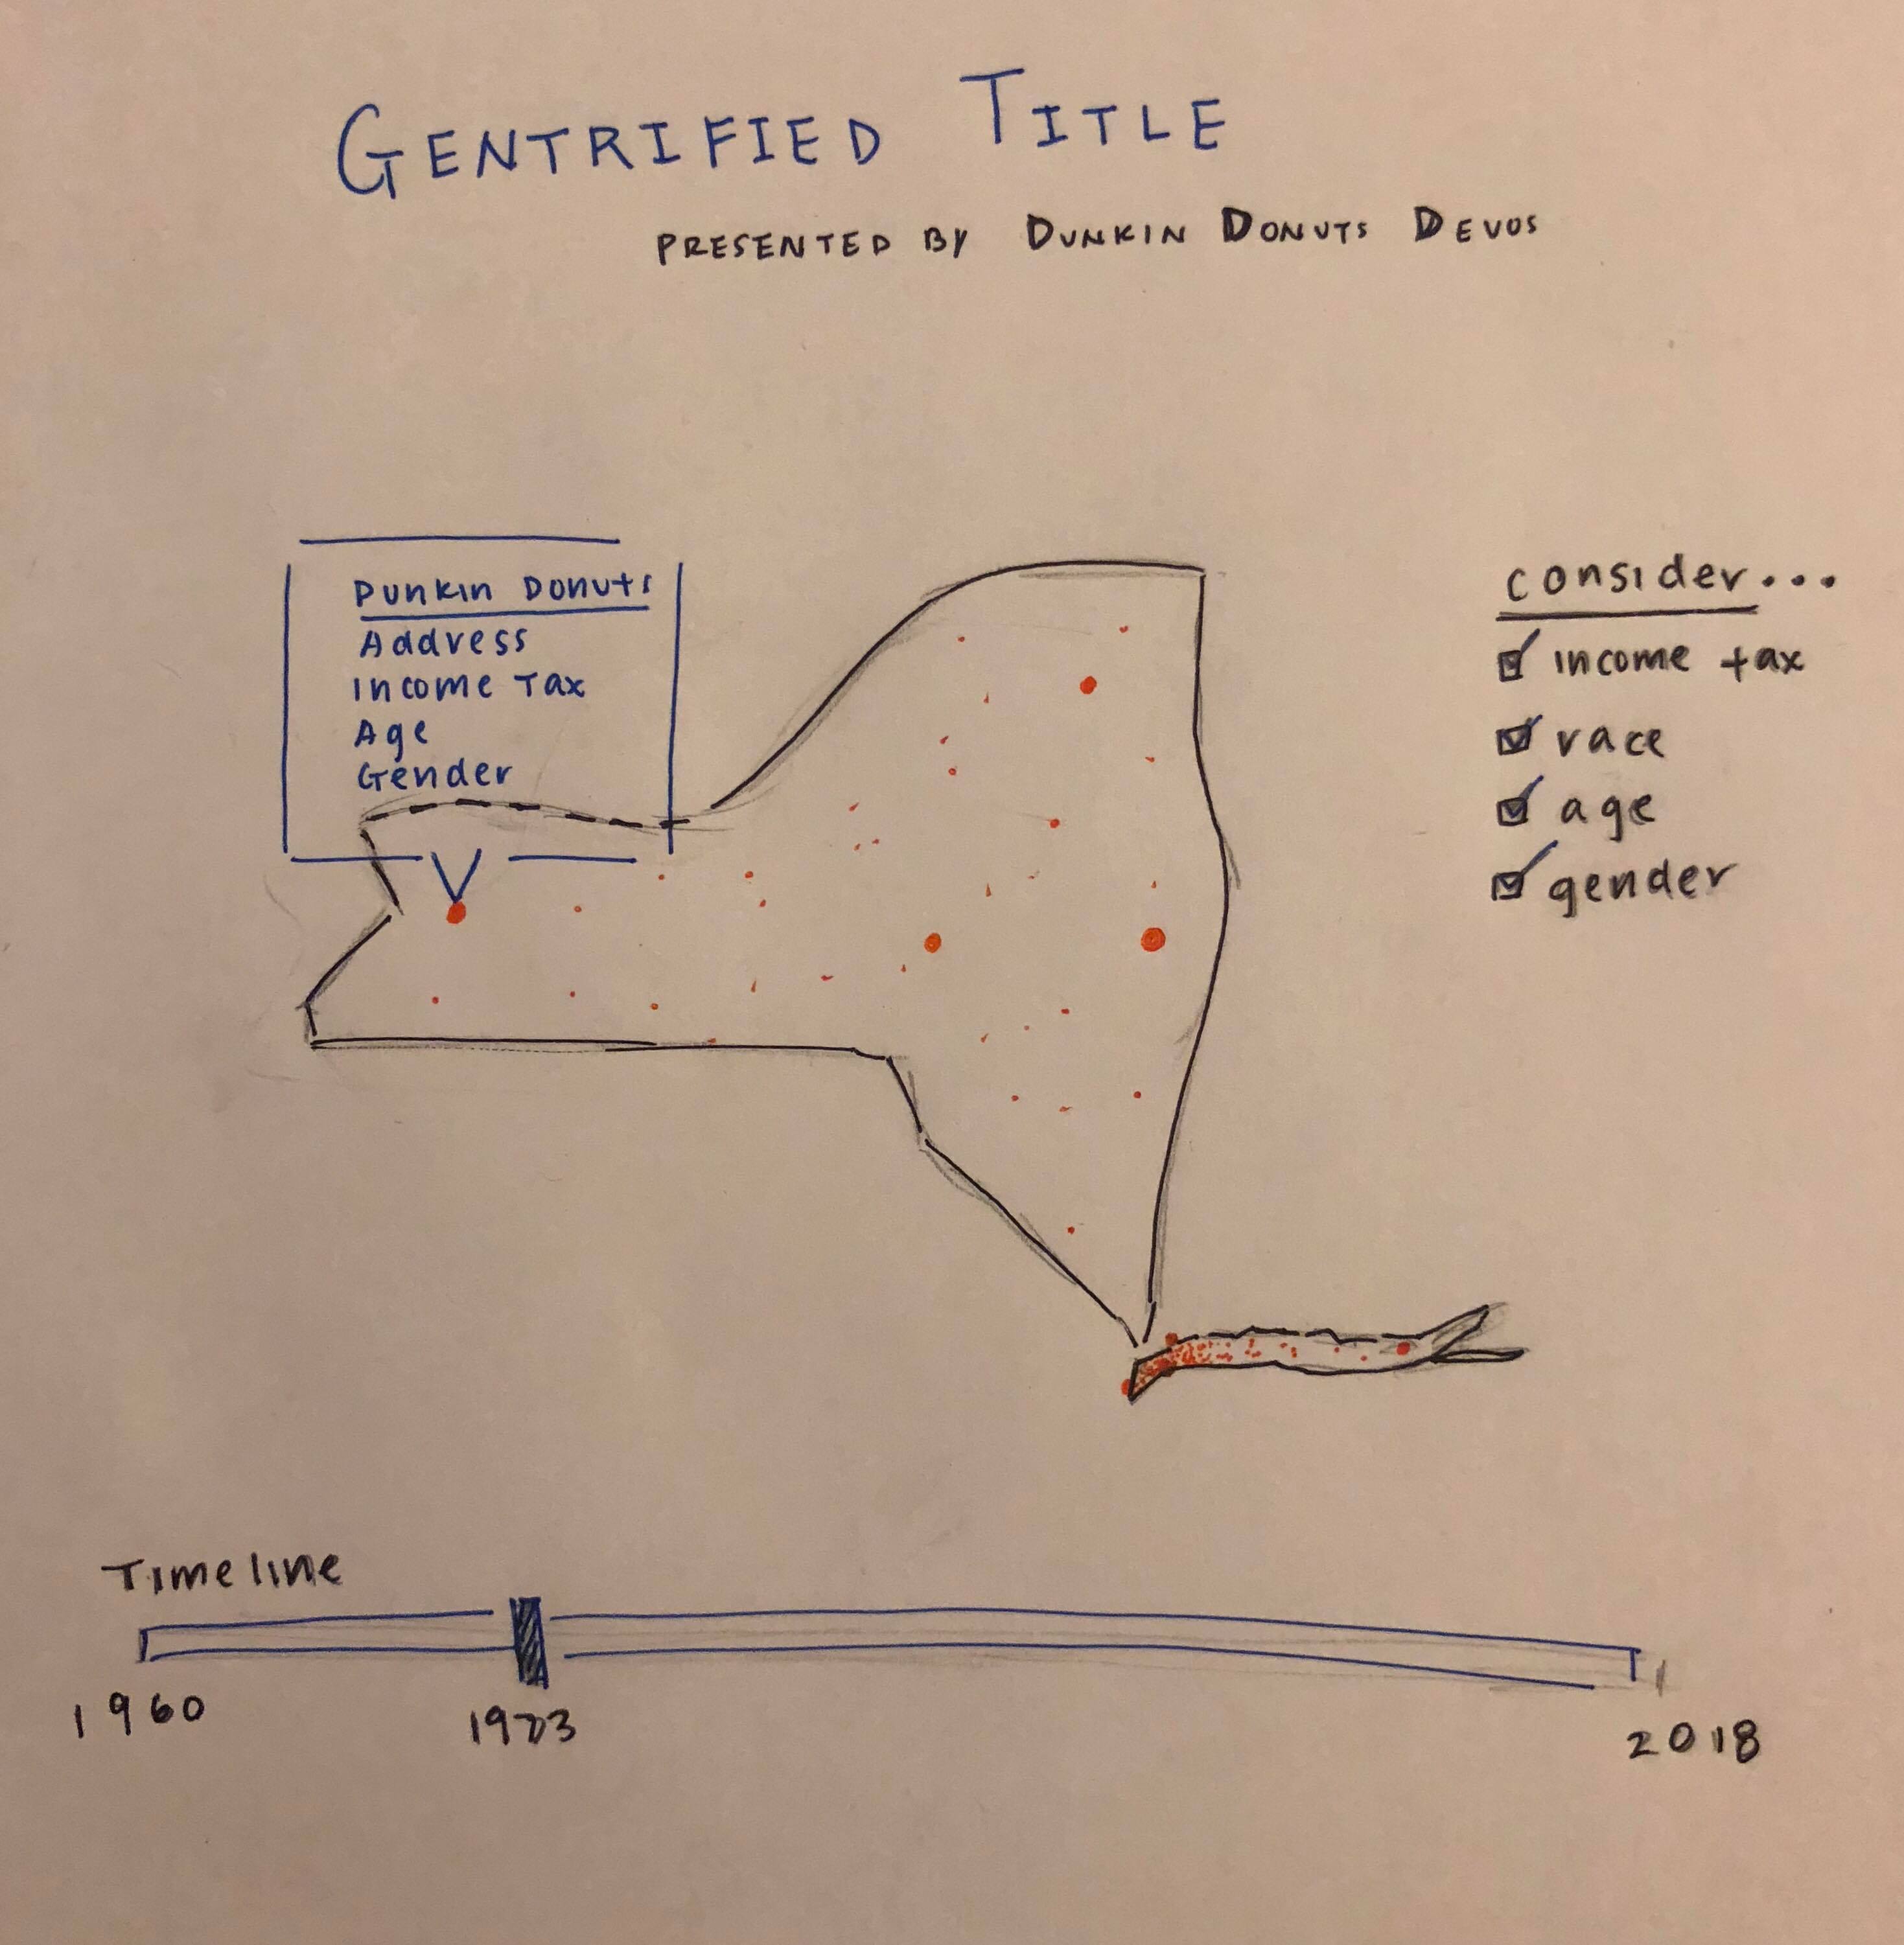 GENTRIFIED TITLE
PRESENTED BY DUNKIN DONUTS DEVOS
Dunkin Donuts
Address
Income Tax
Age
Gender
consider...
income tax
race
age
gender
Timeline
1960
1973
2018